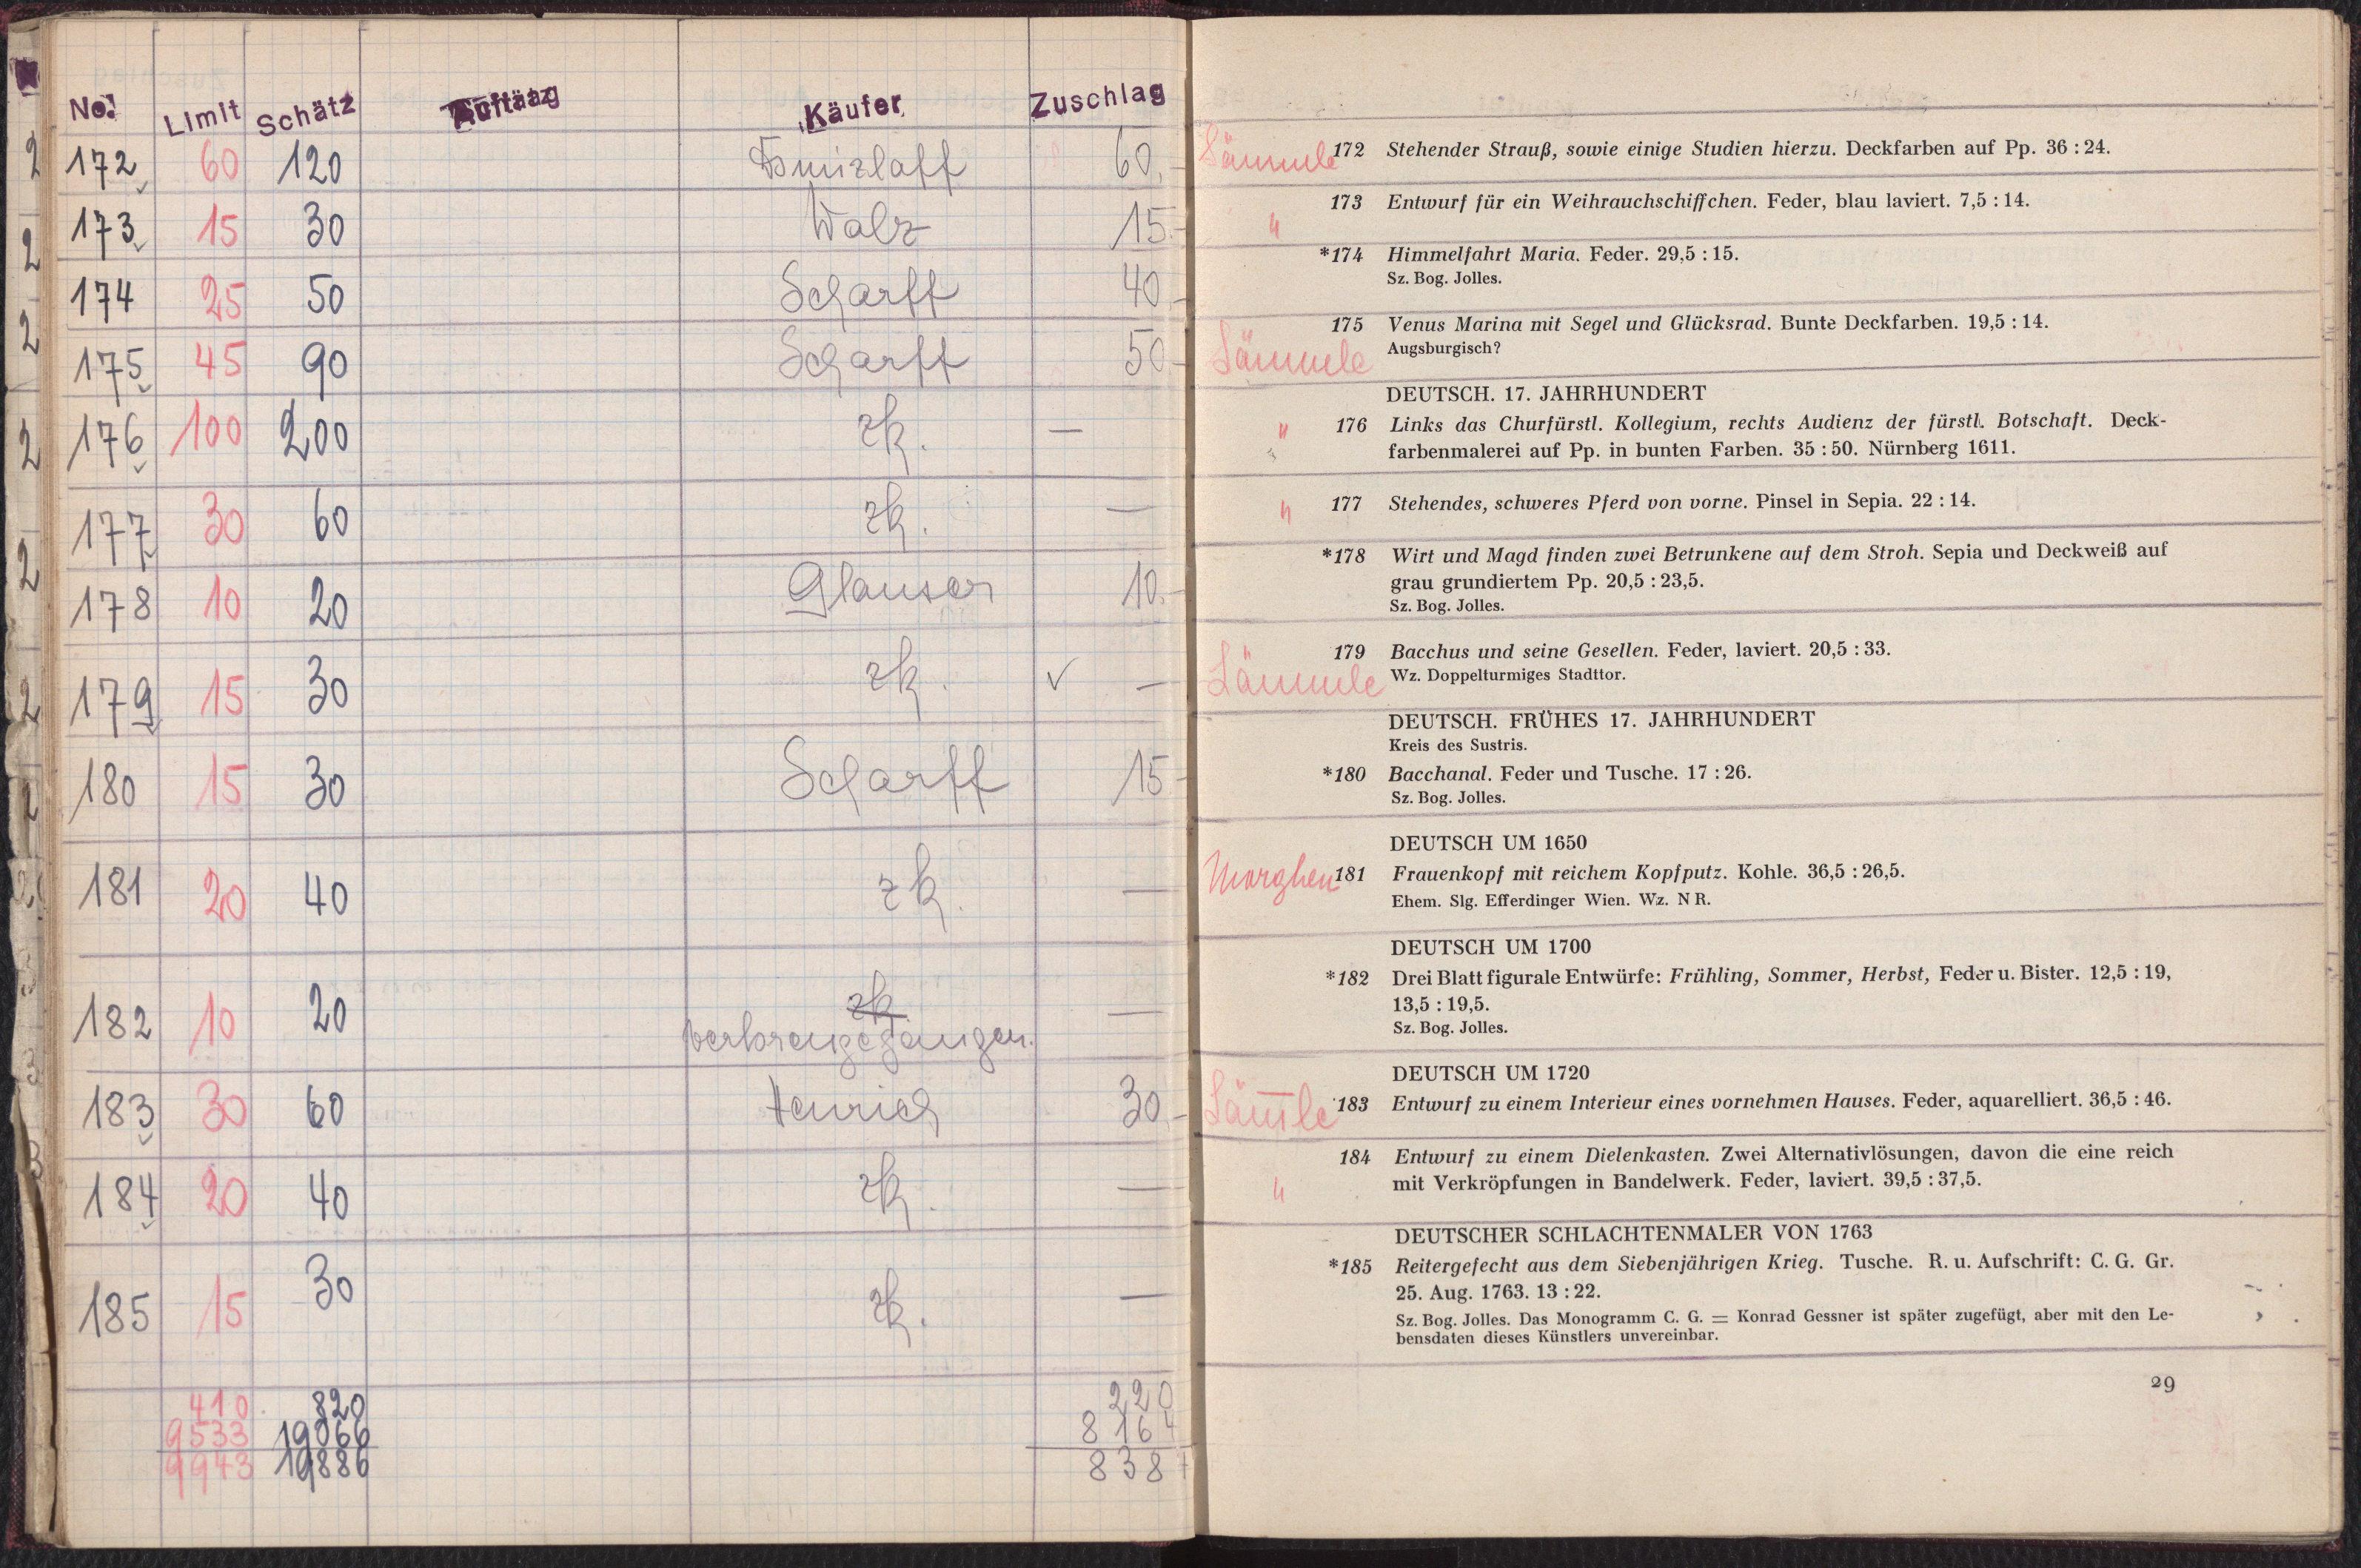 No. Limit Schätz Käufer Zuschlag
172 60 120 Domizlaff 60.-
173 15 30 Walz 15.-
174 25 50 Scharff 40.-
175 45 90 Scharff 50.-
176 100 200 zk. —
177 30 60 zk. —
178 10 20 Glauser 10.-
179 15 30 zk. ✓ —
180 15 30 Scharff 15-
181 20 40 zk. —
182 10 20 zk —
verlorengegangen.
183 30 60 Heinrich 30.-
184 20 40 zk. —
185 15 30 zk. —
410 820 220
9533 19066 8164
9943 19886 838
Lämmle 172 Stehender Strauß, sowie einige Studien hierzu. Deckfarben auf Pp. 36 : 24.
" 173 Entwurf für ein Weihrauchschiffchen. Feder, blau laviert. 7,5 : 14.
*174 Himmelfahrt Maria. Feder. 29,5 : 15.
Sz. Bog. Jolles.
175 Venus Marina mit Segel und Glücksrad. Bunte Deckfarben. 19,5 : 14.
Lämmle Augsburgisch?
DEUTSCH. 17. JAHRHUNDERT
" 176 Links das Churfürstl. Kollegium, rechts Audienz der fürstl. Botschaft. Deck-
farbenmalerei auf Pp. in bunten Farben. 35 : 50. Nürnberg 1611.
" 177 Stehendes, schweres Pferd von vorne. Pinsel in Sepia. 22 : 14.
*178 Wirt und Magd finden zwei Betrunkene auf dem Stroh. Sepia und Deckweiß auf
grau grundiertem Pp. 20,5 : 23,5.
Sz. Bog. Jolles.
179 Bacchus und seine Gesellen. Feder, laviert. 20,5 : 33.
Lämmle Wz. Doppelturmiges Stadttor.
DEUTSCH. FRÜHES 17. JAHRHUNDERT
Kreis des Sustris.
*180 Bacchanal. Feder und Tusche. 17 : 26.
Sz. Bog. Jolles.
DEUTSCH UM 1650
Morghen 181 Frauenkopf mit reichem Kopfputz. Kohle. 36,5 : 26,5.
Ehem. Slg. Efferdinger Wien. Wz. N R.
DEUTSCH UM 1700
*182 Drei Blatt figurale Entwürfe: Frühling, Sommer, Herbst, Feder u. Bister. 12,5 : 19,
13,5 : 19,5.
Sz. Bog. Jolles.
DEUTSCH UM 1720
Läm̅le 183 Entwurf zu einem Interieur eines vornehmen Hauses. Feder, aquarelliert. 36,5 : 46.
184 Entwurf zu einem Dielenkasten. Zwei Alternativlösungen, davon die eine reich
" mit Verkröpfungen in Bandelwerk. Feder, laviert. 39,5 : 37,5.
DEUTSCHER SCHLACHTENMALER VON 1763
*185 Reitergefecht aus dem Siebenjährigen Krieg. Tusche. R. u. Aufschrift: C. G. Gr.
25. Aug. 1763. 13 : 22.
Sz. Bog. Jolles. Das Monogramm C. G. = Konrad Gessner ist später zugefügt, aber mit den Le-
bensdaten dieses Künstlers unvereinbar.
29